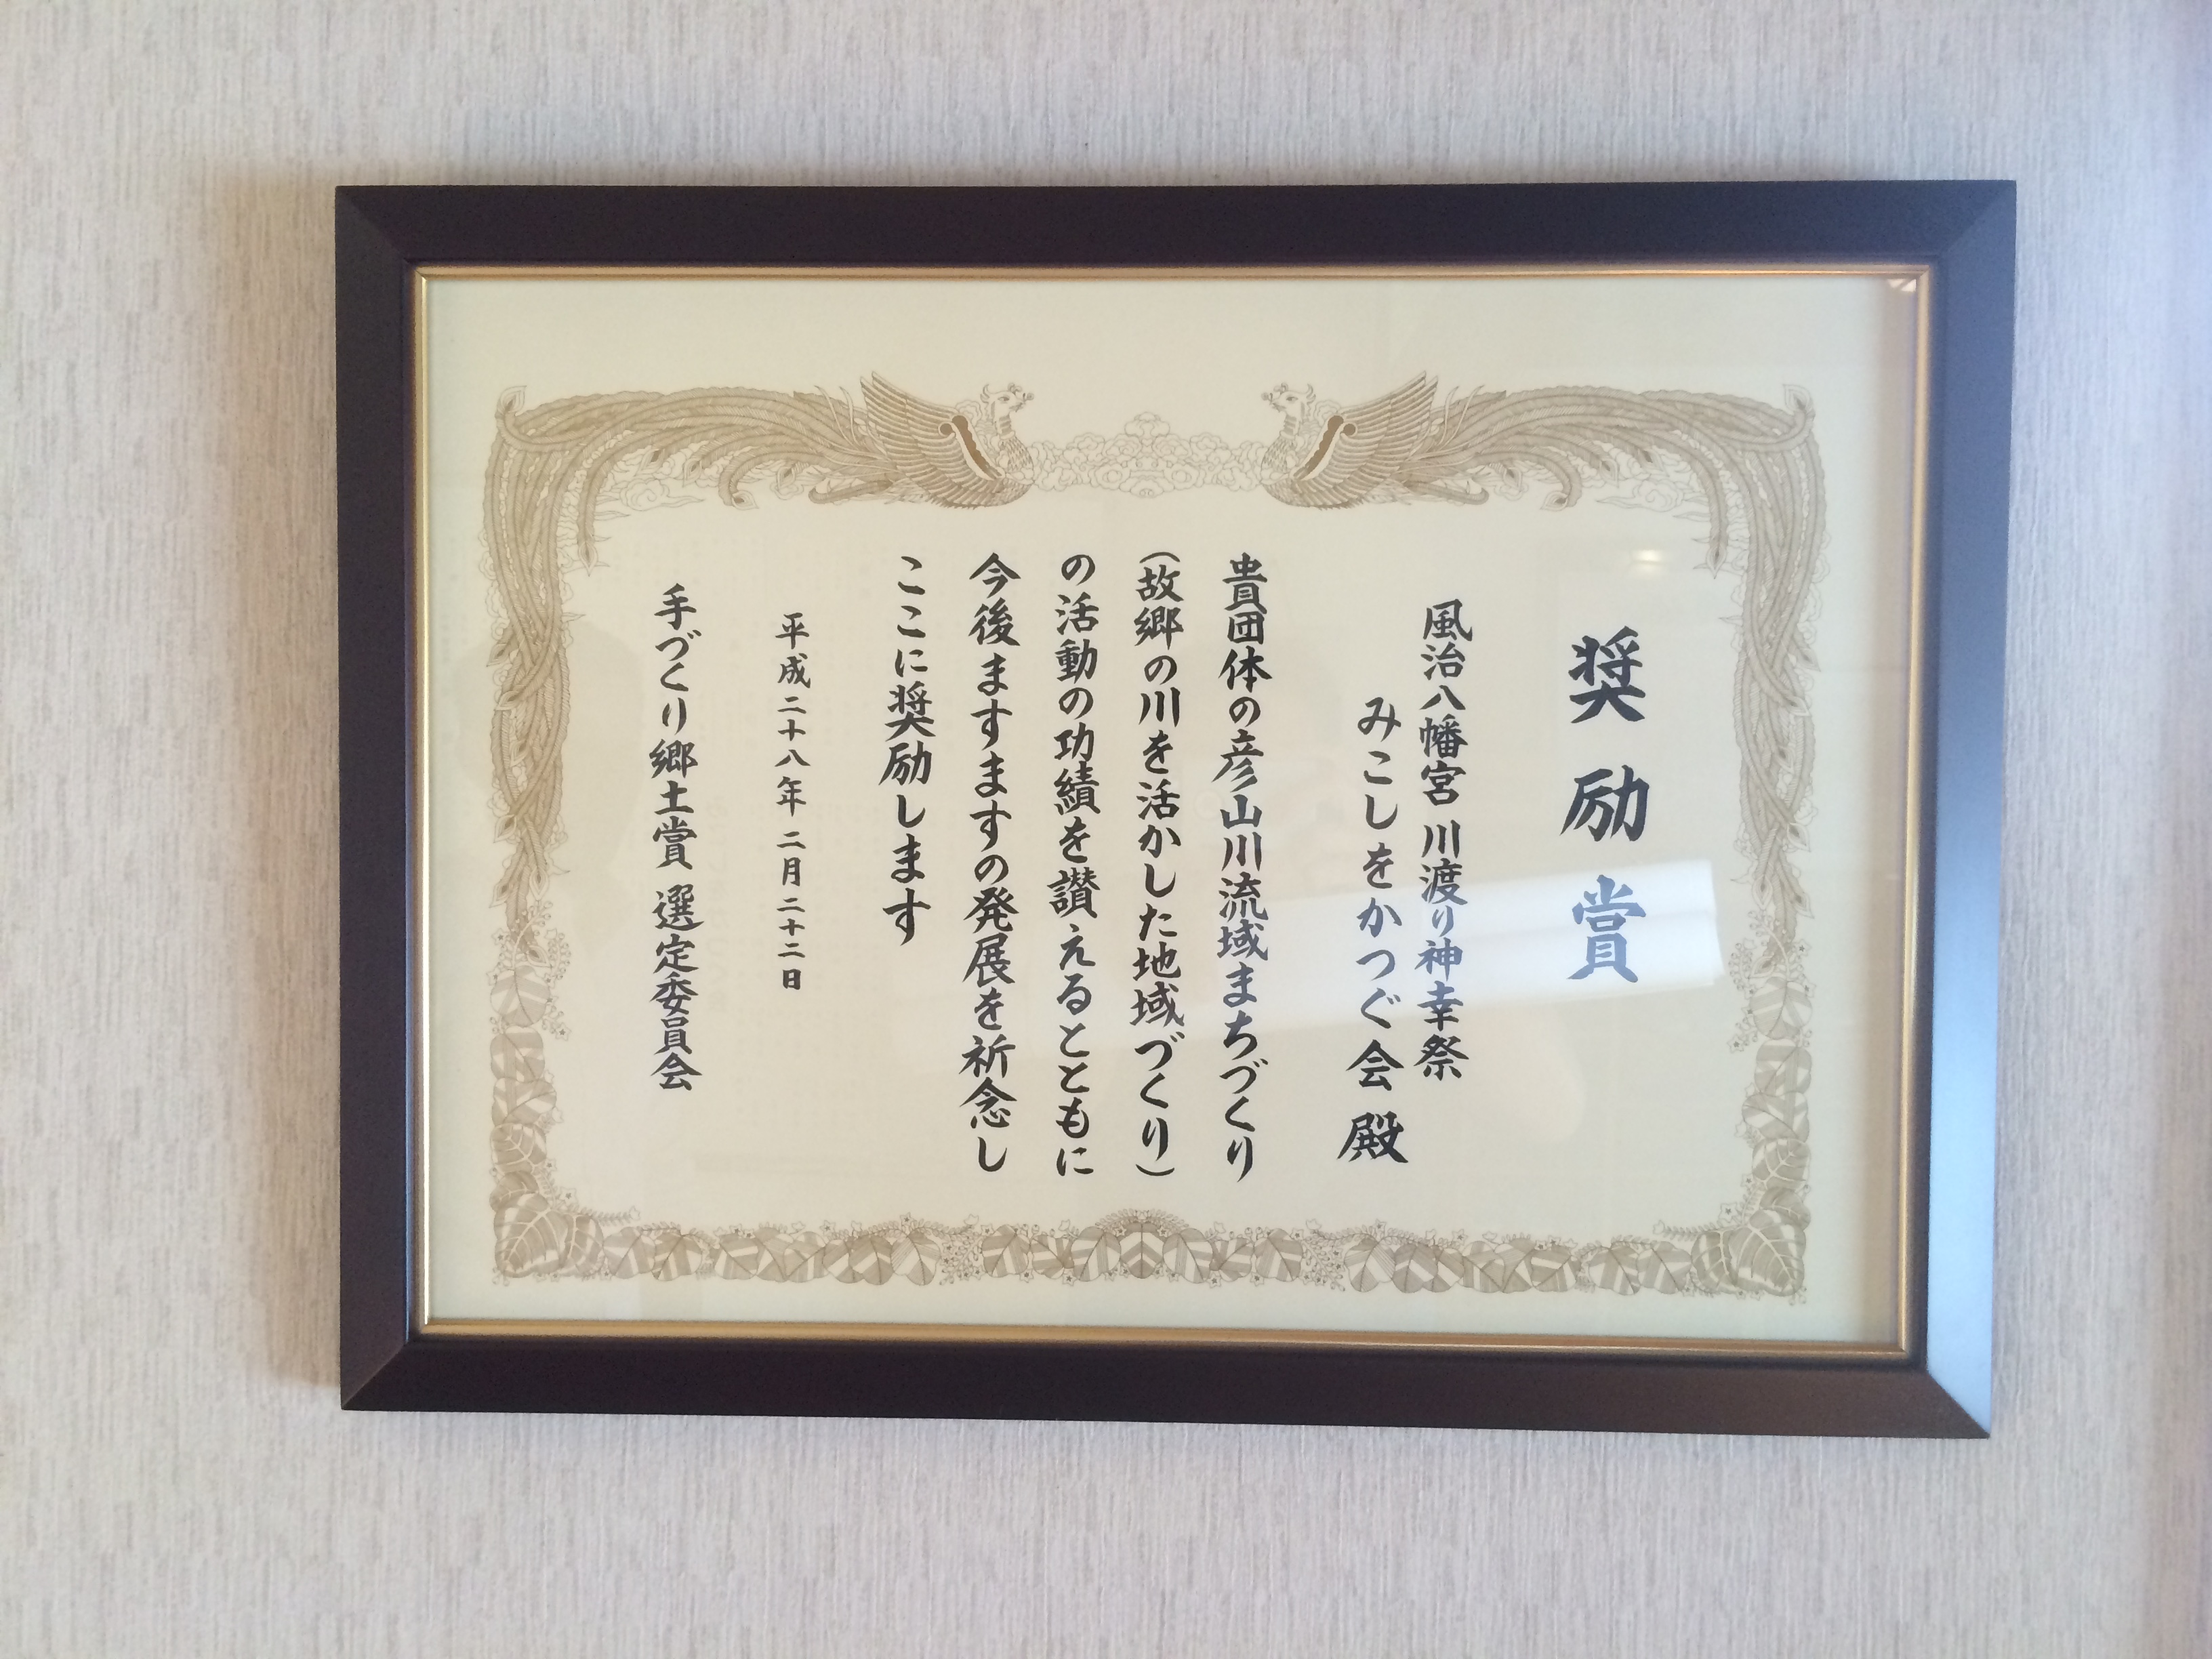 奨励賞
風治八幡宮 川渡り神幸祭
みこしをかつぐ会 殿
貴団体の彦山川流域まちづくり
(故郷の川を活かした地域づくり)
の活動の功績を讃えるとともに
今後ますますの発展を祈念し
ここに奨励します
平成二十八年 二月二十二日
手づくり郷土賞 選定委員会